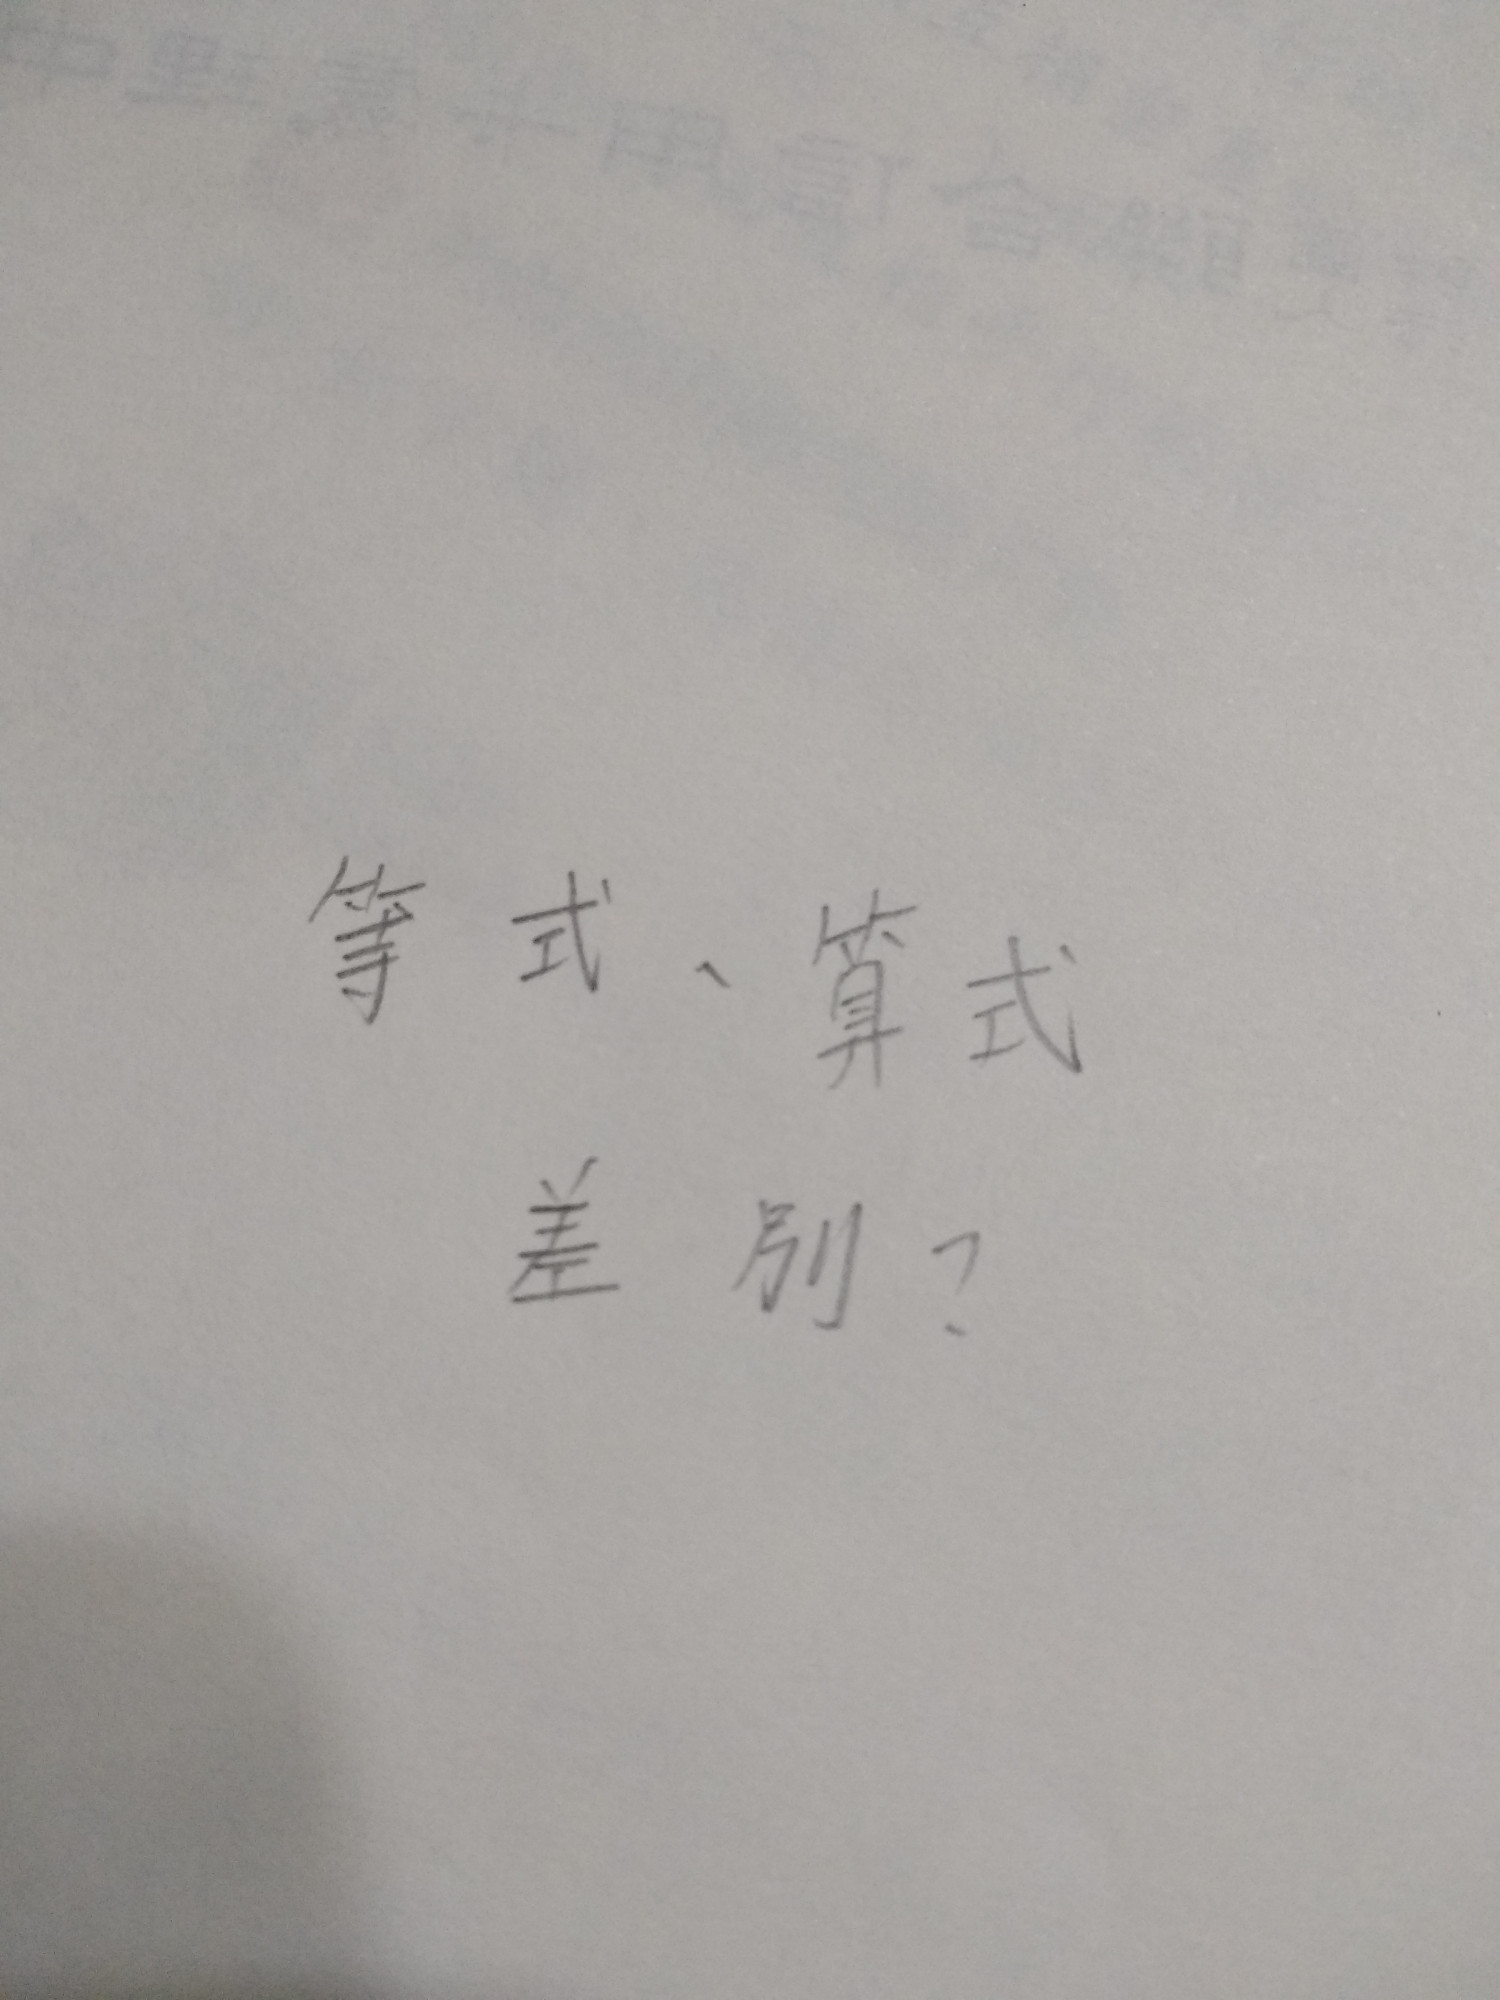 等式、算式
差別？